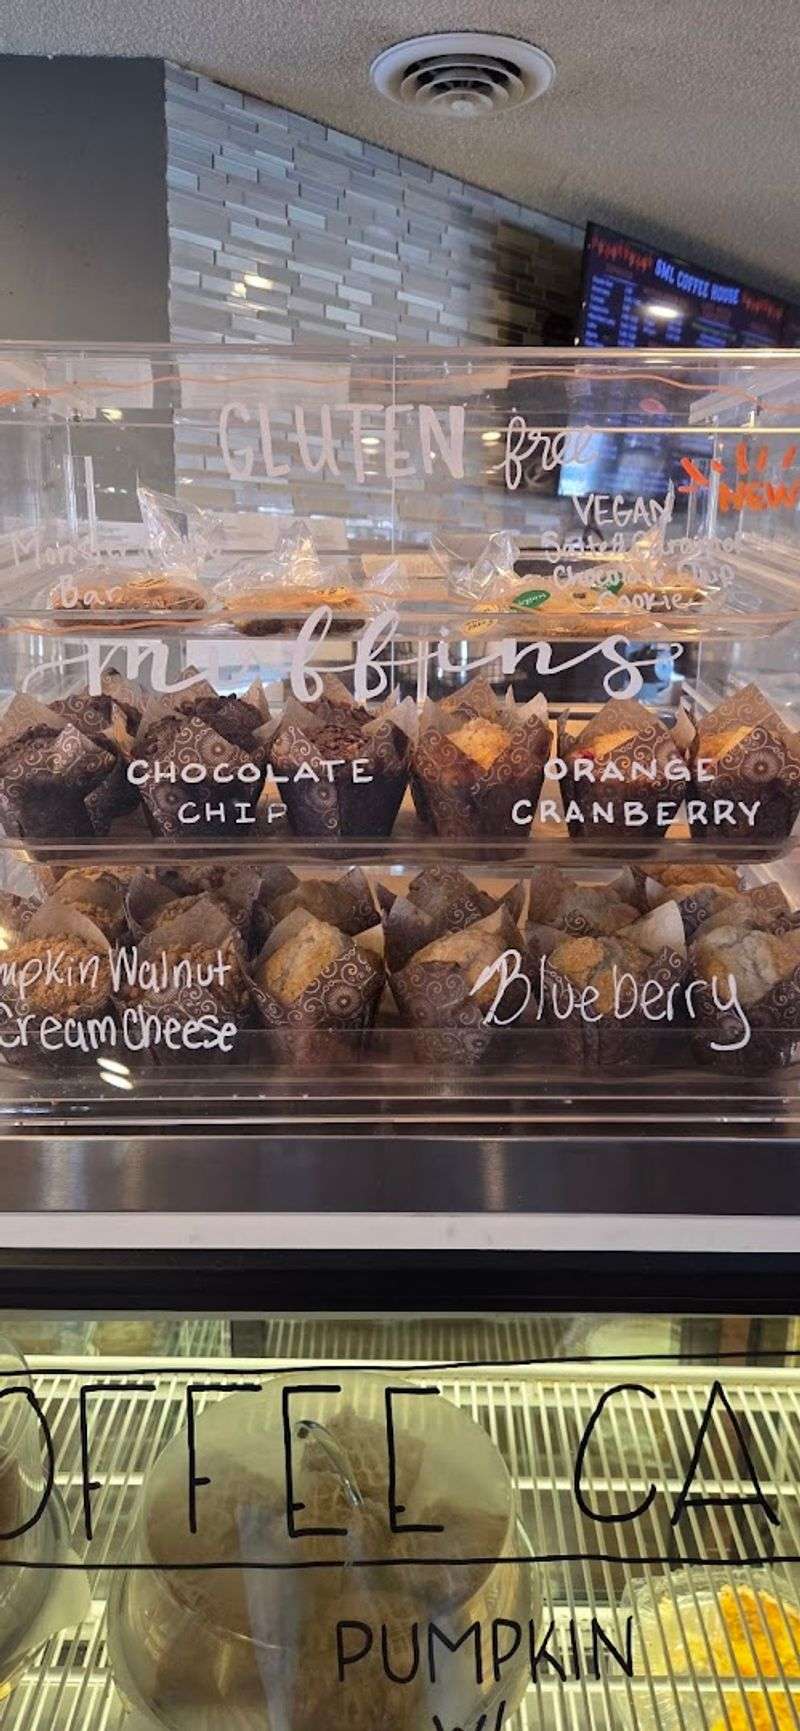 SML COFFEE HOUSE
GLUTEN free
NEW
VEGAN
Salted Caramel
Chocolate Chip
Cookie
Bar
muffins
CHOCOLATE
CHIP
ORANGE
CRANBERRY
mpkin Walnut
Cream Cheese
Blueberry
OFFEE CA
PUMPKIN
W/